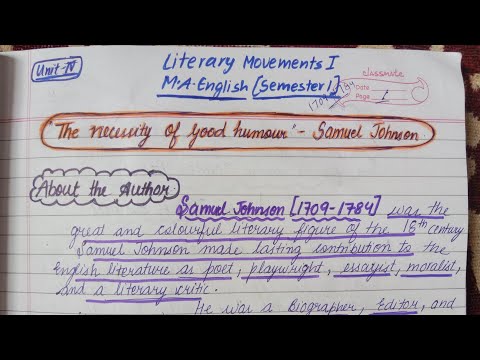 Unit-IV
Literary Movements I
M.A. English [Semester I]
classmate
Date
Page 1
1709-1784
"The necessity of Good humour" - Samuel Johnson
About the Author
Samuel Johnson [1709-1784] was the
great and colourful literary figure of the 16th century
Samuel Johnson made lasting contribution to the
English literature as poet, playwright, essayist, moralist,
and a literary critic.
He was a Biographer, Editor, and